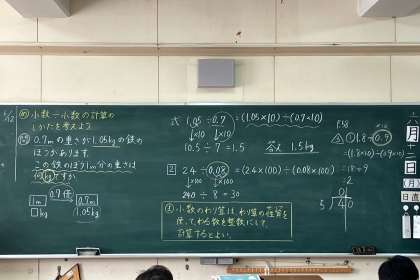 6/12
め 小数÷小数の計算の
しかたを考えよう
0.7mの重さが1.05kgの鉄の
ぼうがあります。
この鉄のぼう1m分の重さは
何kgですか。
0.7倍
1m
0.7m
□kg
1.05kg
式 1.05÷0.7=(1.05×10)÷(0.7×10)
↓×10 ↓×10
10.5÷7=1.5
答え 1.5kg
2 2.4÷0.08=(2.4×100)÷(0.08×100)
↓×100 ↓×100
240÷8=30
ま 小数のわり算は、わり算の性質を
使って、わる数を整数にして
計算するとよい。
P.38
① 1.8÷0.9
×10
=(1.8×10)÷(0.9×10)
=18÷9
=2
5 4.0
六月
十二日
(月)
日直